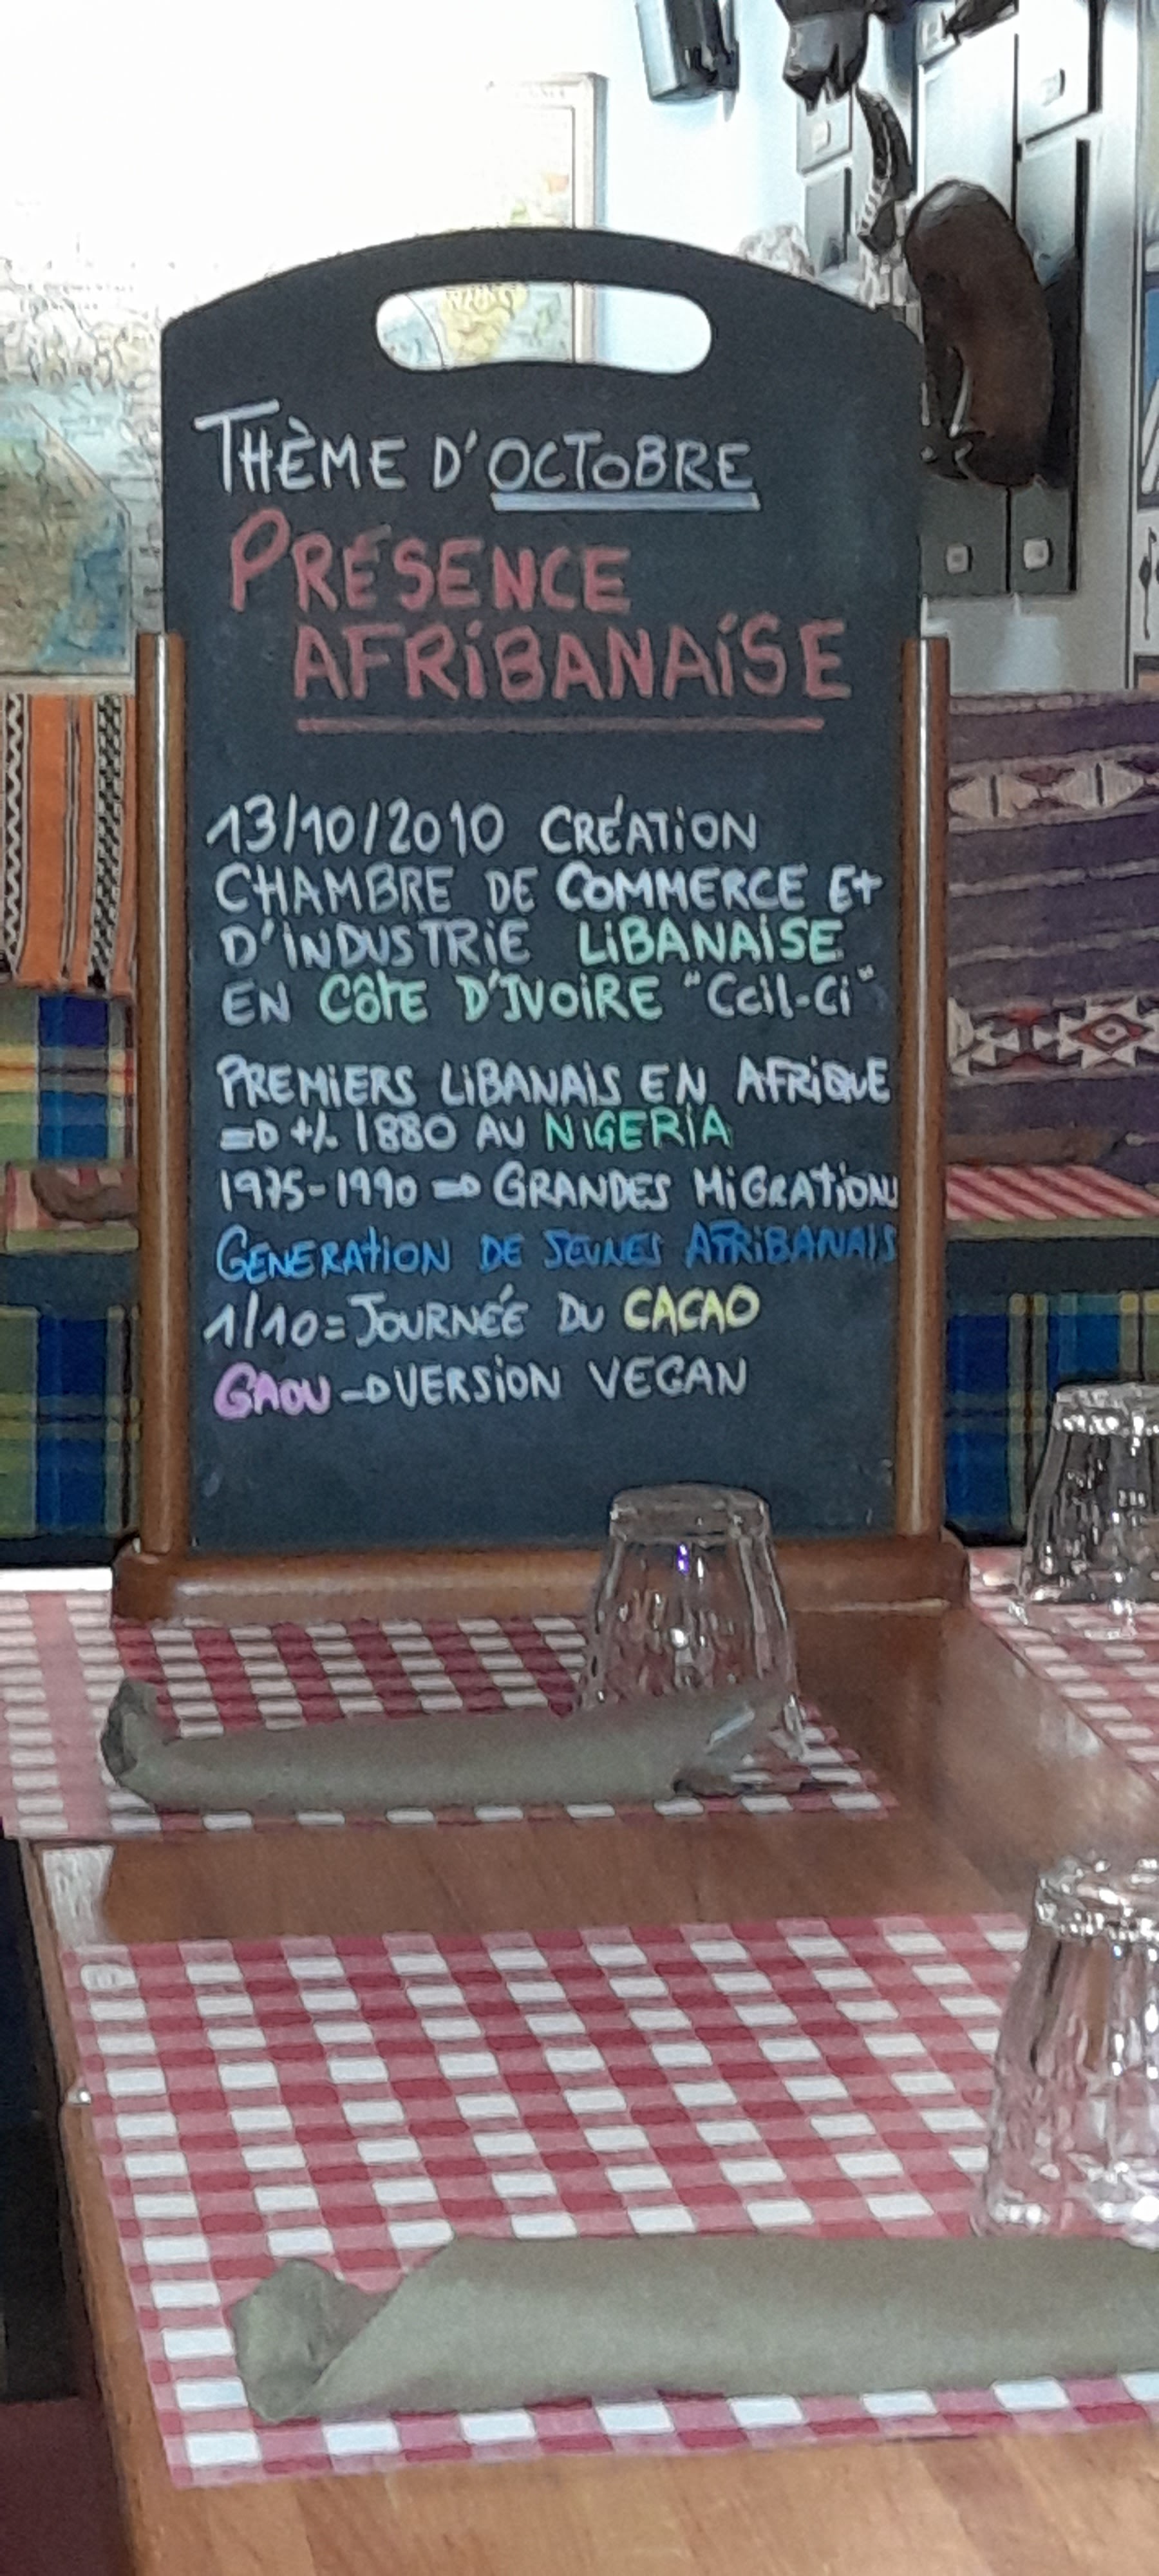 THÈME D'OCTOBRE
PRÉSENCE
AFRIBANAISE
13/10/2010 CRÉATION
CHAMBRE DE COMMERCE Et
D'INDUSTRIE LIBANAISE
EN CÔTE D'IVOIRE "CCIL-Ci"
PREMIERS LIBANAIS EN AFRIQUE
=D +/- 1880 AU NIGERIA
1975-1990 => GRANDES MIGRATIONS
GENERATION DE JEUNES AFRIBANAIS
1/10 = JOURNÉE DU CACAO
GAOU -D VERSION VEGAN